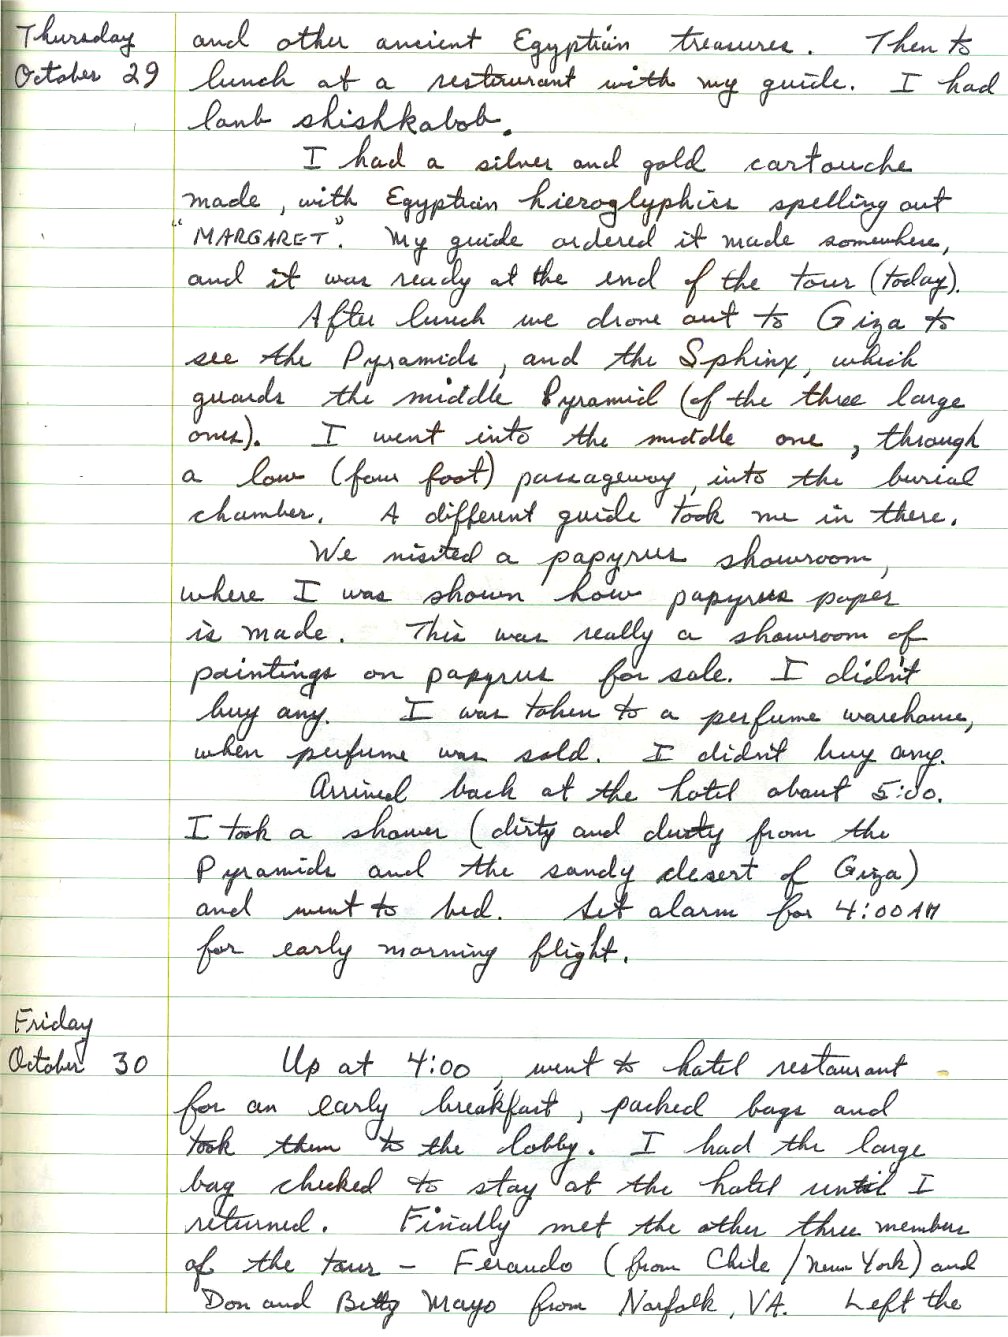 Thursday
October 29
and other ancient Egyptian treasures. Then to
lunch at a restaurant with my guide. I had
lamb shishkabob.
I had a silver and gold cartouche
made, with Egyptian hieroglyphics spelling out
"MARGARET". My guide ordered it made somewhere,
and it was ready at the end of the tour (today).
After lunch we drove out to Giza to
see the Pyramids, and the Sphinx, which
guards the middle Pyramid (of the three large
ones). I went into the middle one, through
a low (four foot) passageway, into the burial
chamber. A different guide took me in there.
We visited a papyrus showroom,
where I was shown how papyrus paper
is made. This was really a showroom of
paintings on papyrus for sale. I didn't
buy any. I was taken to a perfume warehouse,
when perfume was sold. I didn't buy any.
Arrived back at the hotel about 5:00.
I took a shower (dirty and dusty from the
Pyramids and the sandy desert of Giza)
and went to bed. Set alarm for 4:00 AM
for early morning flight.
Friday
October 30
Up at 4:00, went to hotel restaurant
for an early breakfast, packed bags and
took them to the lobby. I had the large
bag checked to stay at the hotel until I
returned. Finally met the other three members
of the tour - Ferando (from Chile / New York) and
Don and Betty Mayo from Norfolk, VA. Left the